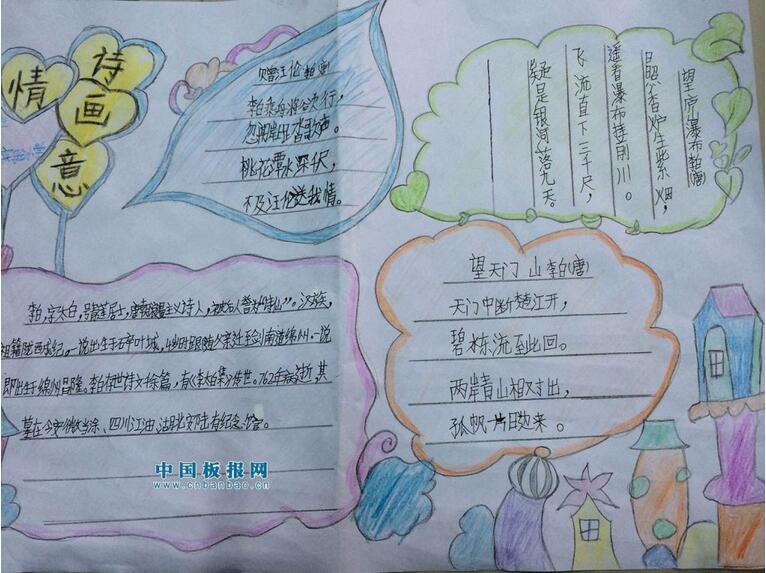 诗
画
情
意
赠汪伦 李白(唐)
李白乘舟将欲行,
忽闻岸上踏歌声。
桃花潭水深千尺,
不及汪伦送我情。
望庐山瀑布 李白(唐)
日照香炉生紫烟,
遥看瀑布挂前川。
飞流直下三千尺,
疑是银河落九天。
望天门山 李白(唐)
天门中断楚江开,
碧水东流至此回。
两岸青山相对出,
孤帆一片日边来。
李白,字太白,号青莲居士,唐朝浪漫主义诗人,被后人誉为“诗仙”。汉族,
祖籍陇西成纪。一说出生于碎叶城,4岁时跟随父亲迁至剑南道绵州。一说
即出生于绵州昌隆。李白存世诗文千余篇,有《李太白集》传世。762年病逝,其
墓在今安徽当涂、四川江油、湖北安陆有纪念馆。
中国板报网
www.cnbanbao.cn